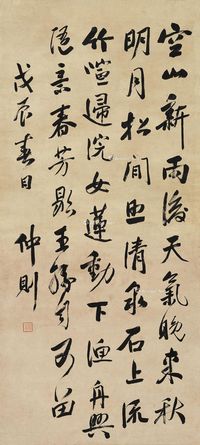 空山新雨後天氣晚來秋
明月松間照清泉石上流
竹喧歸浣女蓮動下漁舟
隨意春芳歇王孫自可留
戊辰春日
仲則